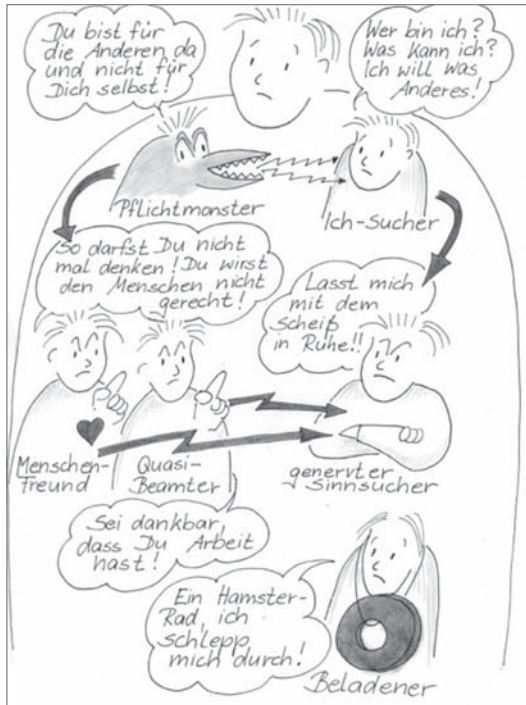 Du bist für
die Anderen da
und nicht für
Dich selbst!
Wer bin ich?
Was kann ich?
Ich will was
Anderes!
Pflichtmonster
Ich-Sucher
So darfst Du nicht
mal denken! Du wirst
den Menschen nicht
gerecht!
Lasst mich
mit dem
Scheiß
in Ruhe!!
Menschen-
freund
Quasi-
Beamter
genervter
Sinnsucher
Sei dankbar,
dass Du Arbeit
hast!
Ein Hamster-
Rad, ich
schlepp
mich durch!
Beladener